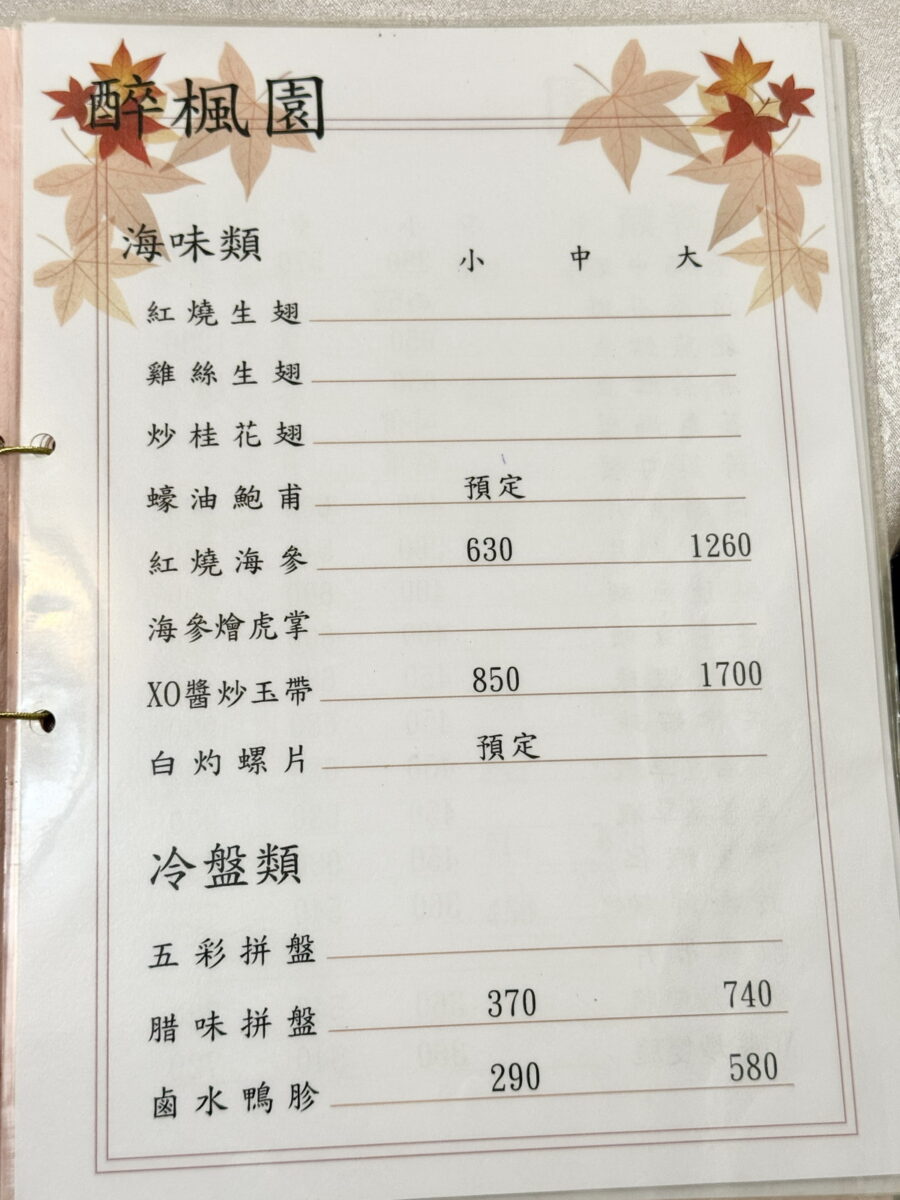 醉楓園
海味類 小 中 大
紅燒生翅
雞絲生翅
炒桂花翅
蠔油鮑甫 預定
紅燒海參 630 1260
海參燴虎掌
XO醬炒玉帶 850 1700
白灼螺片 預定
冷盤類
五彩拼盤
腊味拼盤 370 740
鹵水鴨胗 290 580